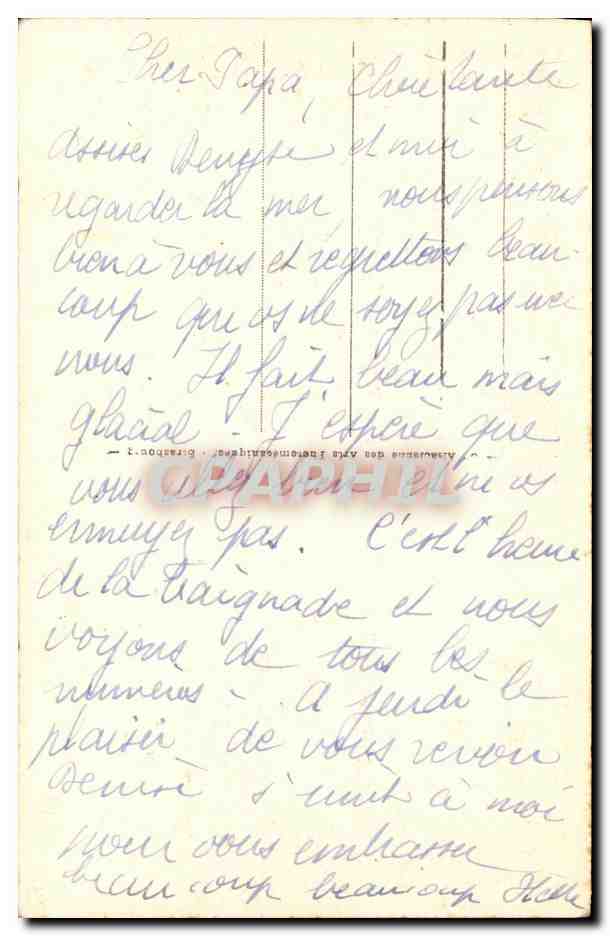 Cher Papa, Chère tante
assises Denyse et moi à
regarder la mer, nous pensons
bien à vous et regrettons beau-
coup que vs ne soyez pas avec
nous. Il fait beau mais
glacial - J'espère que
Alsacienne des Arts Photomécaniques - Strasbourg
CPAPHIL
vous allez bien et ne vs
ennuyez pas. C'est l'heure
de la baignade et nous
voyons de tous les
numéros - A jeudi le
plaisir de vous revoir
Denise s'unit à moi
pour vous embrasser
beaucoup beaucoup